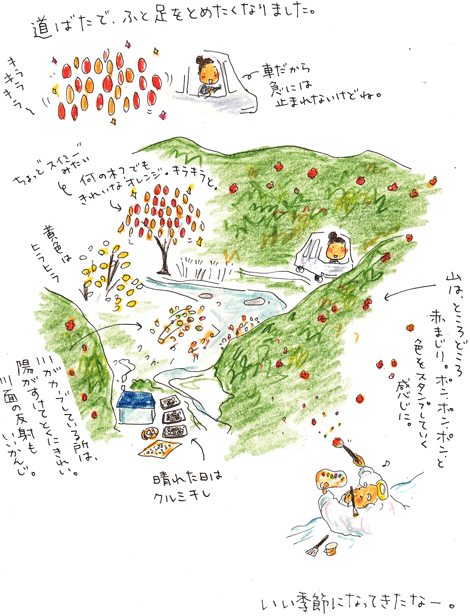 道ばたで、ふと足をとめたくなりました。
キラ
キラ
キラ
キラ
車だから
急には
止まれないけどね。
ちょっとスイミーみたい
何のオフでも
きれいなオレンジ。キラキラと。
黄色は
ヒラヒラ
山は、ところどころ
赤まじり。ポン、ポン、ポン、と
色をスタンプしていく
感じに。
川がカーブしている所は、
陽がすけてとくにきれい。
川面の反射も
いいかんじ。
晴れた日は
クルミ干し
いい季節になってきたなー。